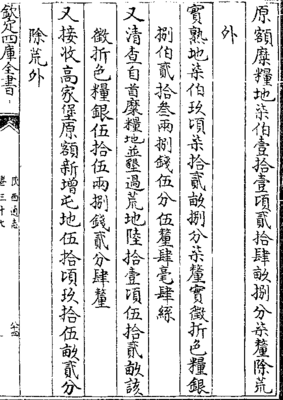 原額糜糧地柒伯壹拾壹頃貳拾肆畝捌分柒釐除荒
外
實熟地柒伯玖頃柒拾貳畝捌分柒釐實徵折色糧銀
捌伯貳拾叁兩捌錢伍分伍釐肆毫肆絲
又清查自首糜糧地並墾過荒地陸拾壹頃伍拾貳畝該
徵折色糧銀伍拾伍兩捌錢貳分肆釐
又接收高家堡原額新增屯地伍拾頃玖拾伍畝貳分
除荒外
欽定四庫全書
陝西通志
卷三十六